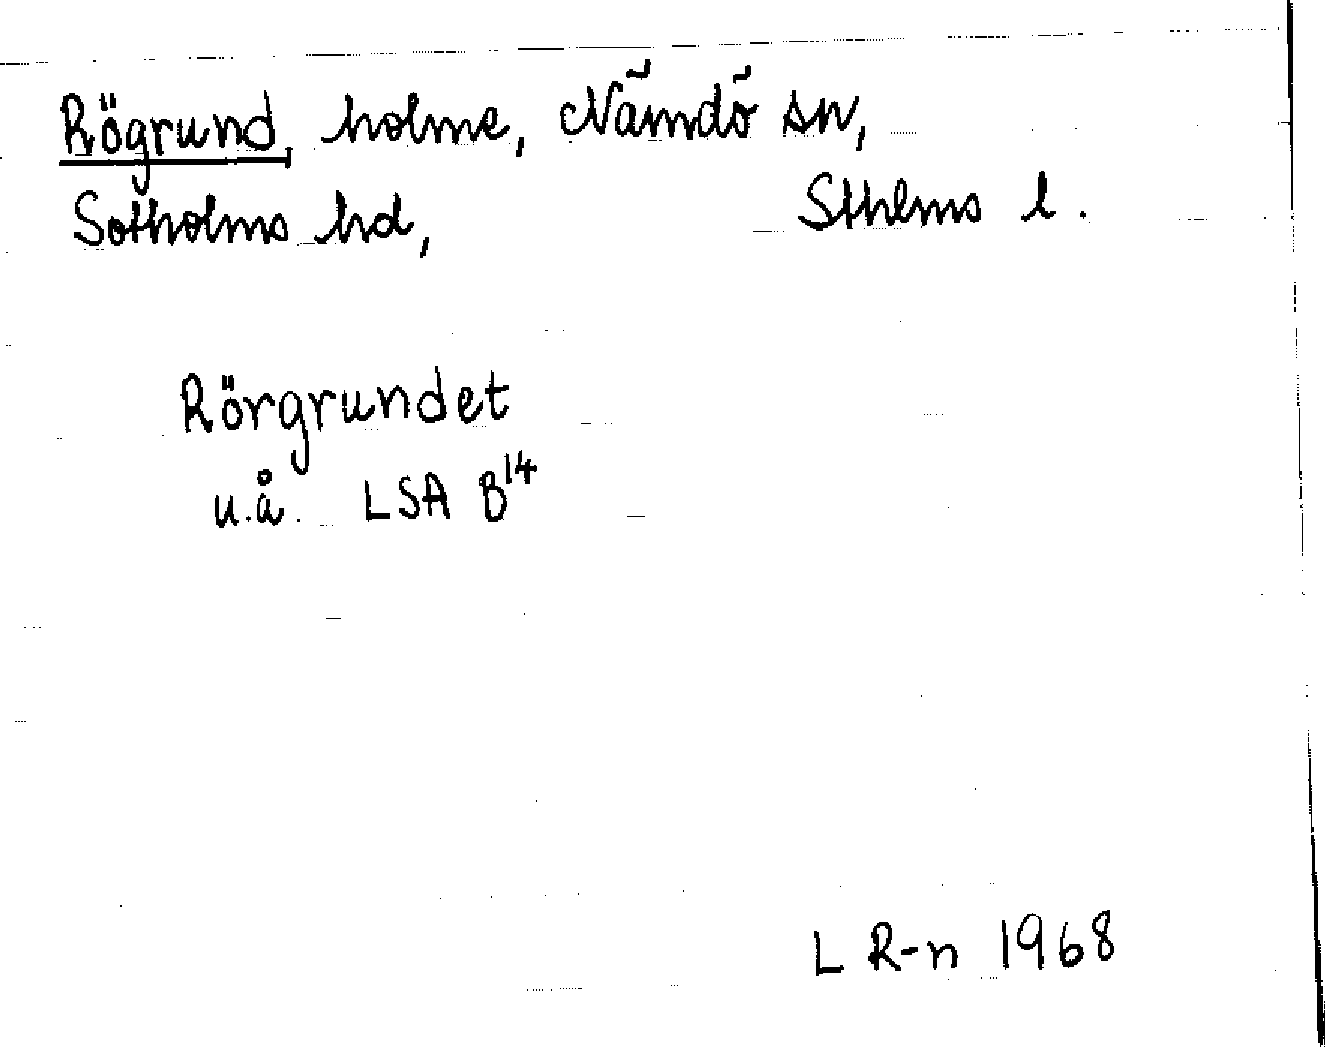 Rögrund, holme, Nämdö sn,
Sotholms hd, Sthlms l.
Rörgrundet
u.å. LSA B¹⁴
L R-n 1968